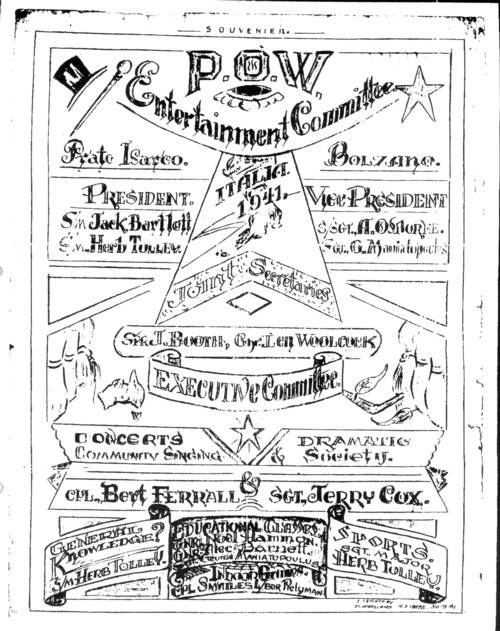 SOUVENIER.
P.O.W.
Entertainment Committee
Prato Isarco.
Bolzano.
ITALIA
1941.
President.
Vice President
S/M Jack Bartlett
S/M. Herb Tolley.
S/Sgt. A. Osborne.
Sgt. G. Maniatopoulos
Joint Secretaries
Spr. J. Booth, Gnr. Len Woolcock
Executive Committee.
Concerts
Community Singing
&
Dramatic
Society.
Cpl. Bert Ferrall & Sgt. Jerry Cox.
General
Knowledge?
S/M Herb Tolley.
Educational Classes.
Gnr. Noel Hammon
Alec Barnett.
George Maniatopoulus
Indoor Games.
Cpl
L/Bdr Prelyman
Sports
Sgt. Major
Herb Tolley.
30-9-41